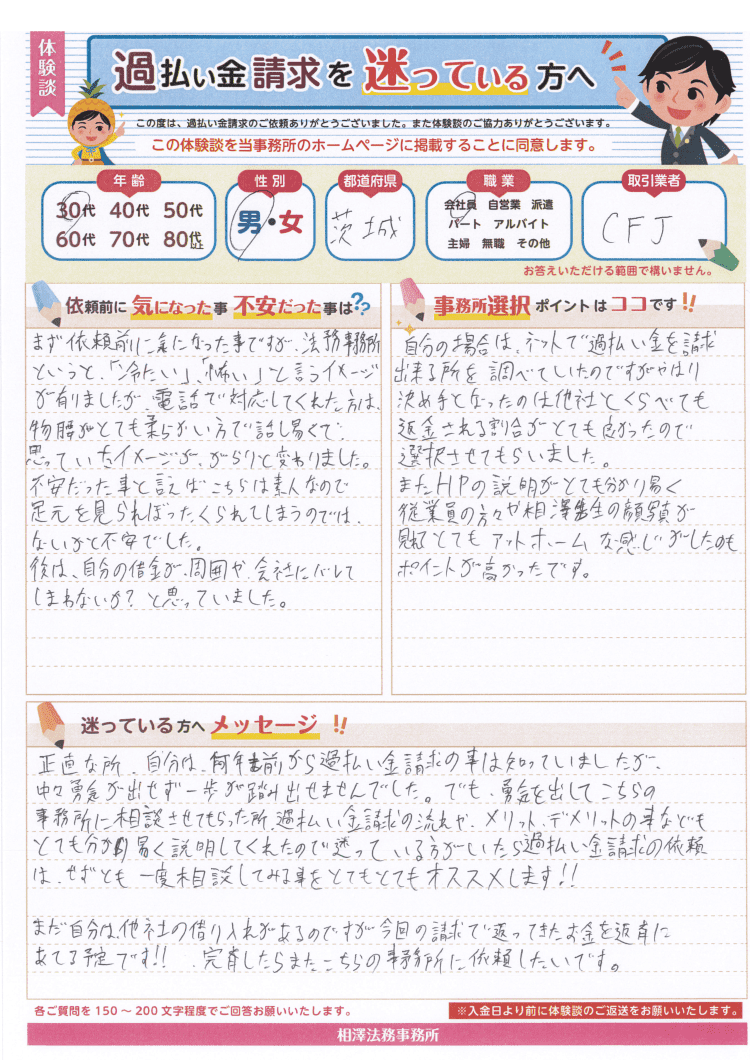 体験談
過払い金請求を迷っている方へ
この度は、過払い金請求のご依頼ありがとうございました。また体験談のご協力ありがとうございます。
この体験談を当事務所のホームページに掲載することに同意します。
年齢 性別 都道府県 職業 取引業者
30代 40代 50代
60代 70代 80代以上
男・女
茨城
会社員 自営業 派遣
パート アルバイト
主婦 無職 その他
CFJ
お答えいただける範囲で構いません。
依頼前に気になった事不安だった事は??
まず依頼前に気になった事ですが、法務事務所
というと、「冷たい」、「怖い」と言うイメージ
が有りましたが、電話で対応してくれた方は、
物腰がとても柔らかい方で話し易くて、
思っていたイメージが、がらりと変わりました。
不安だった事と言えばこちらは素人なので
足元を見られぼったくられてしまうのでは、
ないかと不安でした。
後は、自分の借金が、周囲や、会社にバレて
しまわないか?と思っていました。
事務所選択ポイントはココです!!
自分の場合は、ネットで過払い金を請求
出来る所を調べていたのですがやはり
決め手となったのは他社とくらべても
返金される割合がとても良かったので
選択させてもらいました。
またHPの説明がとても分かり易く
従業員の方々や相澤先生の顔写真が
見れてとてもアットホームな感じがしたのも
ポイントが高かったです。
迷っている方へメッセージ!!
正直な所、自分は、何年も前から過払い金請求の事は知っていましたが、
中々勇気が出せず一歩が踏み出せませんでした。でも、勇気を出してこちらの
事務所に相談させてもらった所、過払い金請求の流れや、メリット、デメリットの事なども
とても分かり易く説明してくれたので迷っている方がいたら過払い金請求の依頼
は、ぜひとも一度相談してみる事をとてもとてもオススメします!!
まだ自分は、他社の借り入れがあるのですが今回の請求で返ってきたお金を返済に
あてる予定です!!、完済したらまたこちらの事務所に依頼したいです。
各ご質問を150～200文字程度でご回答お願いいたします。
※入金日より前に体験談のご返送をお願いいたします。
相澤法務事務所